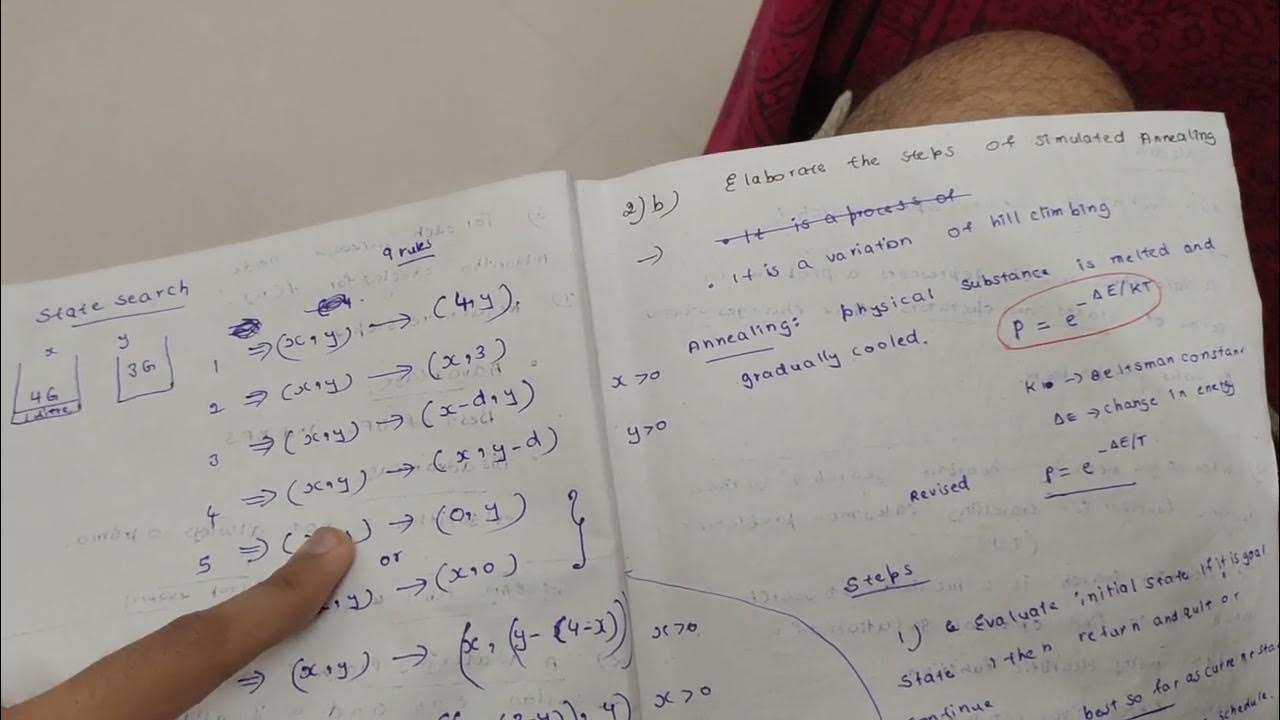 State search
9 rules
x y
4G 3G
1 litre
1 ⇒ (x,y) → (4,y).
2 ⇒ (x,y) → (x,3)
3 ⇒ (x,y) → (x-d,y) x>0
4 ⇒ (x,y) → (x,y-d) y>0
5 ⇒ ( ) → (0,y)
or
,y) → (x,0)
⇒ (x,y) → (x,(y-(4-x)) x>0
, y) x>0
2)b) Elaborate the steps of Simulated Annealing
→ • It is a process of
• It is a variation of hill climbing
Annealing: physical substance is melted and
gradually cooled.
p = e^-ΔE/KT
K → Beltsman constant
ΔE → change in energy
Revised p = e^-ΔE/T
Steps
1) Evaluate initial state If it is goal
state, then return and quit or
continue
best so far as current sta
schedule.